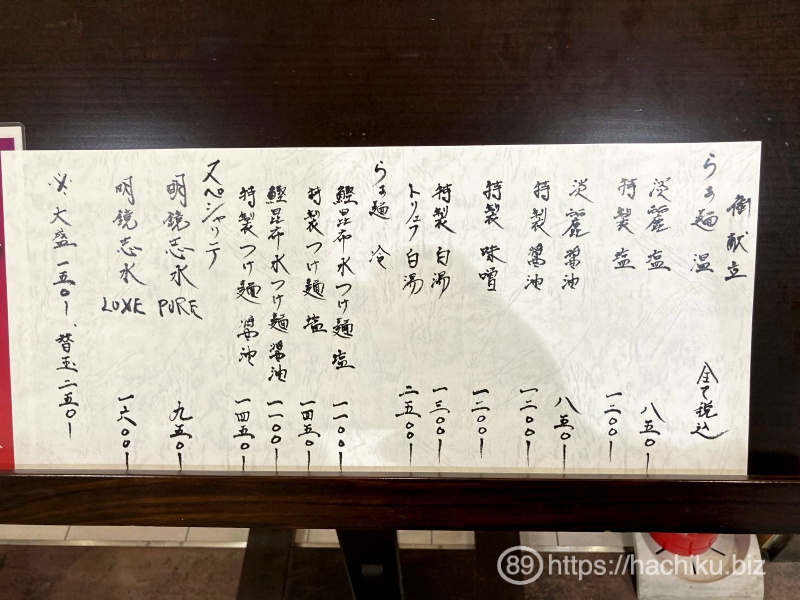 御献立
らぁ麺 温 全て税込
淡麗 塩 八五〇ー
特製 塩 一二〇〇ー
淡麗 醤油 八五〇ー
特製 醤油 一二〇〇ー
特製 味噌 一二〇〇ー
特製 白湯 一三〇〇ー
トリュフ白湯 二五〇〇ー
らぁ麺 冷
鰹昆布水つけ麺 塩 一一〇〇ー
特製つけ麺 塩 一四五〇ー
鰹昆布水つけ麺 醤油 一一〇〇ー
特製つけ麺 醤油 一四五〇ー
スペシャリテ
明鏡志水 PURE 九五〇ー
明鏡志水 LUXE 一六〇〇ー
※大盛一五〇ー、替玉二五〇ー
89 https://hachiku.biz